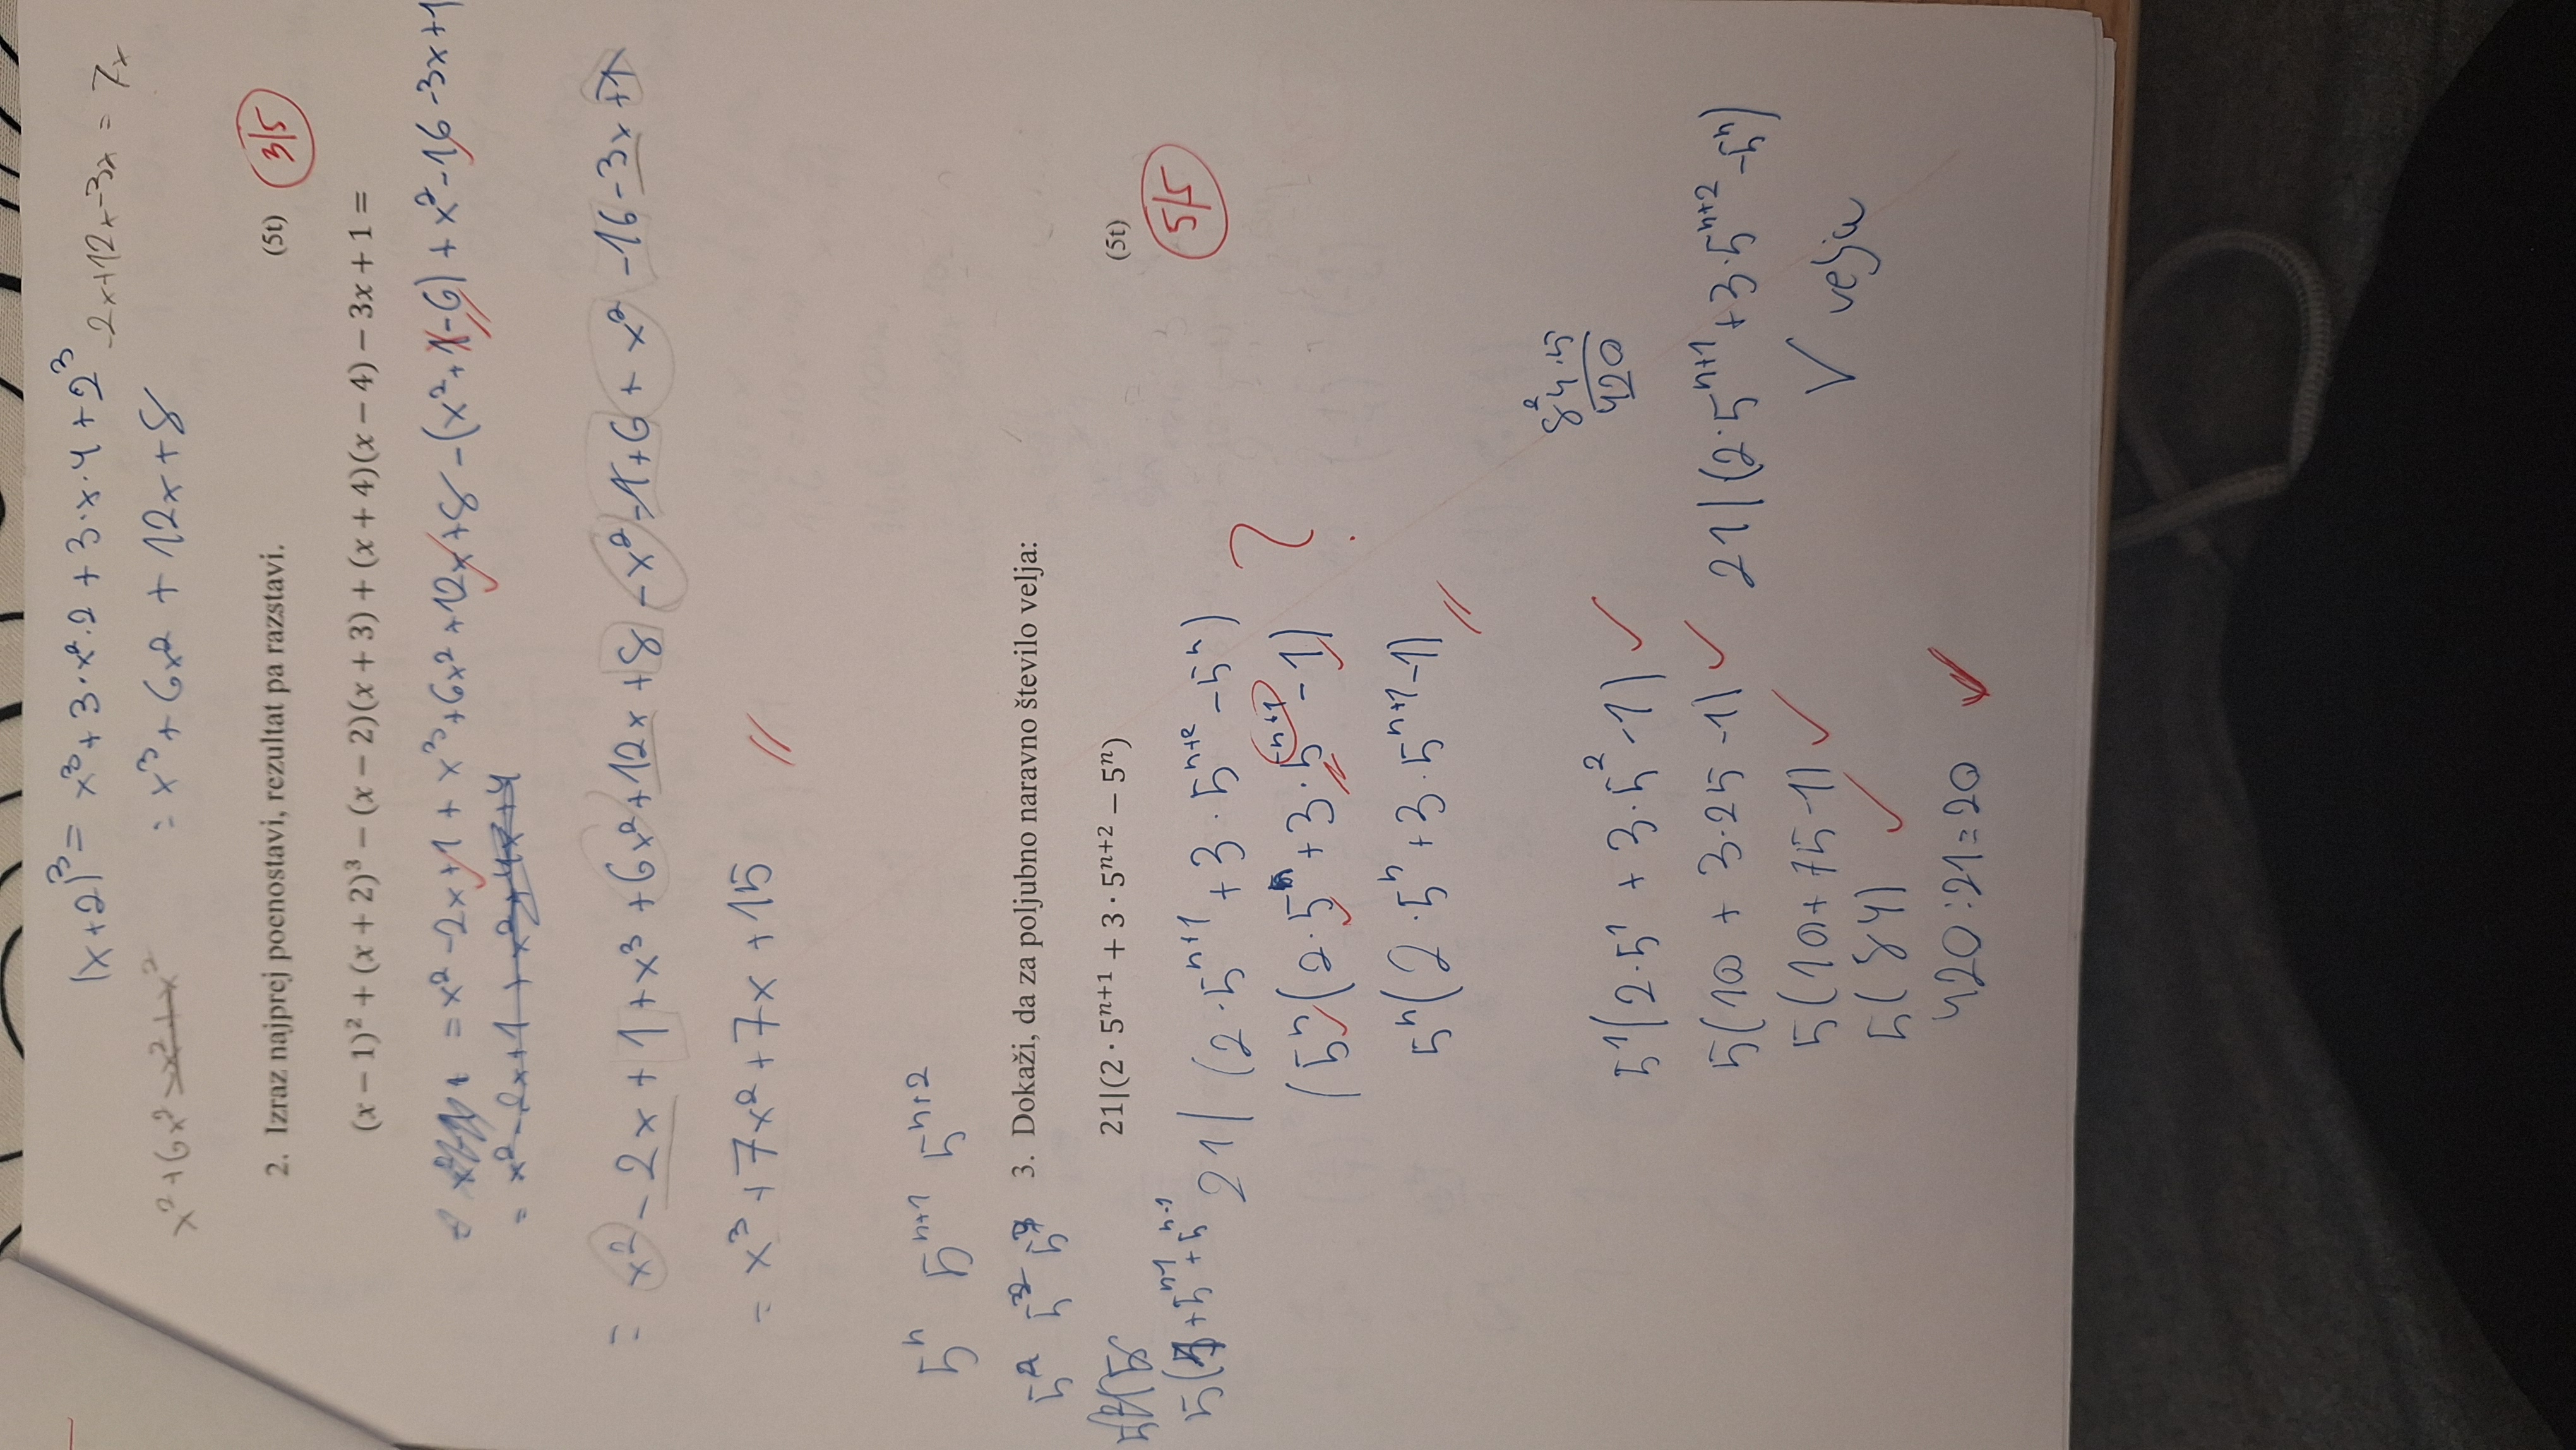 (x+2)³ = x³ + 3·x²·2 + 3·x·4 + 2³
-2x+12x-3x = 7x
x²+6x²-x²+x²
= x³ + 6x² + 12x + 8
2. Izraz najprej poenostavi, rezultat pa razstavi. (5t) 3/5
(x − 1)² + (x + 2)³ − (x − 2)(x + 3) + (x + 4)(x − 4) − 3x + 1 =
= x² -2x+1 + x³+6x²+12x+8 -(x²+1-6) + x²-16-3x+1
= x²-2x+1 + x²+4x+4
= x² - 2x + 1 + x³ + 6x² + 12x + 8 - x² - 1 + 6 + x² - 16 - 3x + 1
= x³ + 7x² + 7x + 15
5ⁿ 5ⁿ⁺¹ 5ⁿ⁺²
3. Dokaži, da za poljubno naravno število velja:
21|(2 · 5ⁿ⁺¹ + 3 · 5ⁿ⁺² − 5ⁿ) (5t)
5/5
21 | (2·5ⁿ⁺¹ + 3·5ⁿ⁺² - 5ⁿ)
?
(5ⁿ(2·5ⁿ + 3·5ⁿ⁺¹ - 1)
5ⁿ(2·5ⁿ + 3·5ⁿ⁺¹ - 1)
84·5
420
5¹(2·5¹ + 3·5² - 1)
5(10 + 3·25 - 1)
21 | (2·5ⁿ⁺¹ + 3·5ⁿ⁺² - 5ⁿ)
5(10 + 75 - 1)
√ velja
5(84)
420:21=20